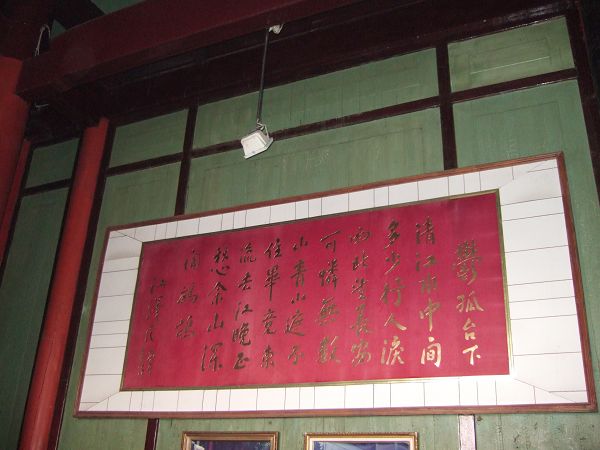 鬱孤台下
清江水中間
多少行人淚
西北望長安
可憐無數
山青山遮不
住畢竟東
流去江晚正
愁余山深
聞鷓鴣